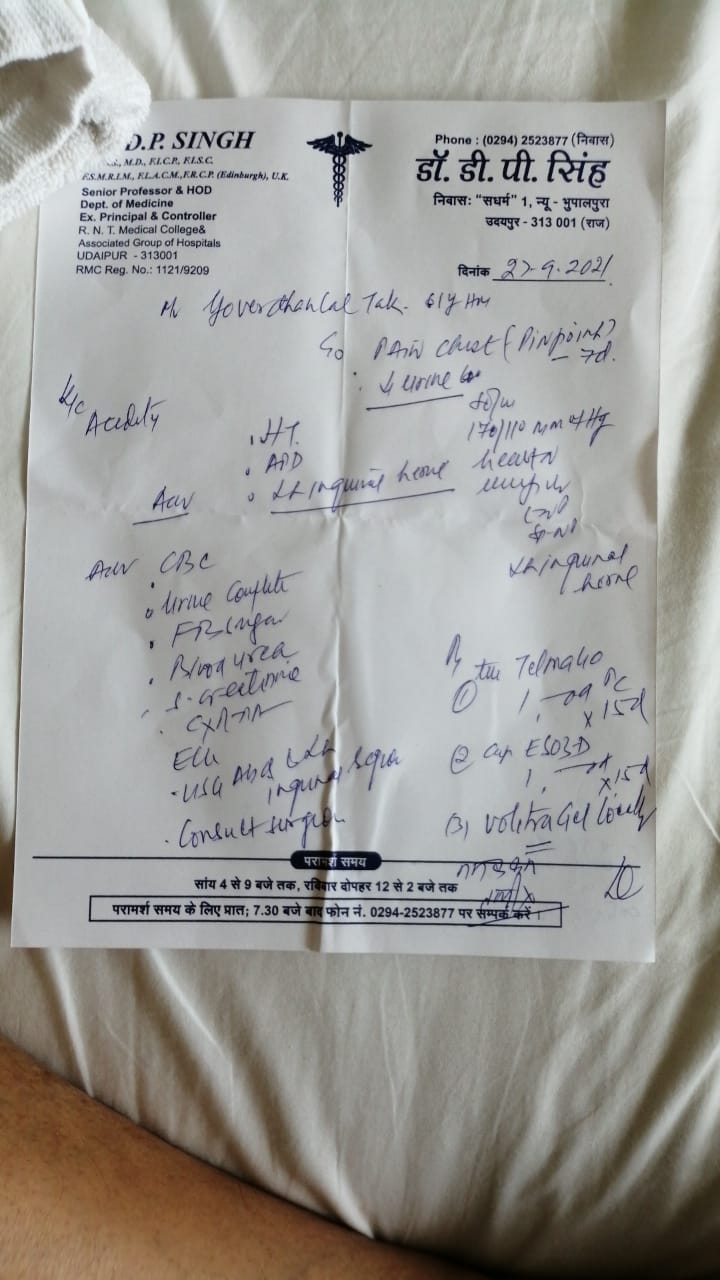 D.P. SINGH
M.D., F.I.C.P., F.I.S.C.
F.S.M.R.I.M., F.I.A.C.M., F.R.C.P. (Edinburgh), U.K.
Senior Professor & HOD
Dept. of Medicine
Ex. Principal & Controller
R. N. T. Medical College&
Associated Group of Hospitals
UDAIPUR - 313001
RMC Reg. No.: 1121/9209
Phone : (0294) 2523877 (निवास)
डॉ. डी. पी. सिंह
निवासः "सधर्म" 1, न्यू - भुपालपुरा
उदयपुर - 313 001 (राज)
दिनांक 27.9.2021
Goverdhanlal Tak.
Pain chest (Pinpoint)
- 7d.
urine
Acidity
170/110 mm of Hg
. HT.
. APD
Lt inguinal hernia
Adv
Lt inguinal
hernia
Adv CBC
Urine Complete
FB Sugar
Blood urea
S-creatinine
ECG
USG Abd
inguinal
Consult surgeon
①
x 15d
②
x 15d
(3) Gel Locally
परामर्श समय
सांय 4 से 9 बजे तक, रविवार दोपहर 12 से 2 बजे तक
परामर्श समय के लिए प्रात; 7.30 बजे बाद फोन नं. 0294-2523877 पर सम्पर्क करें ।